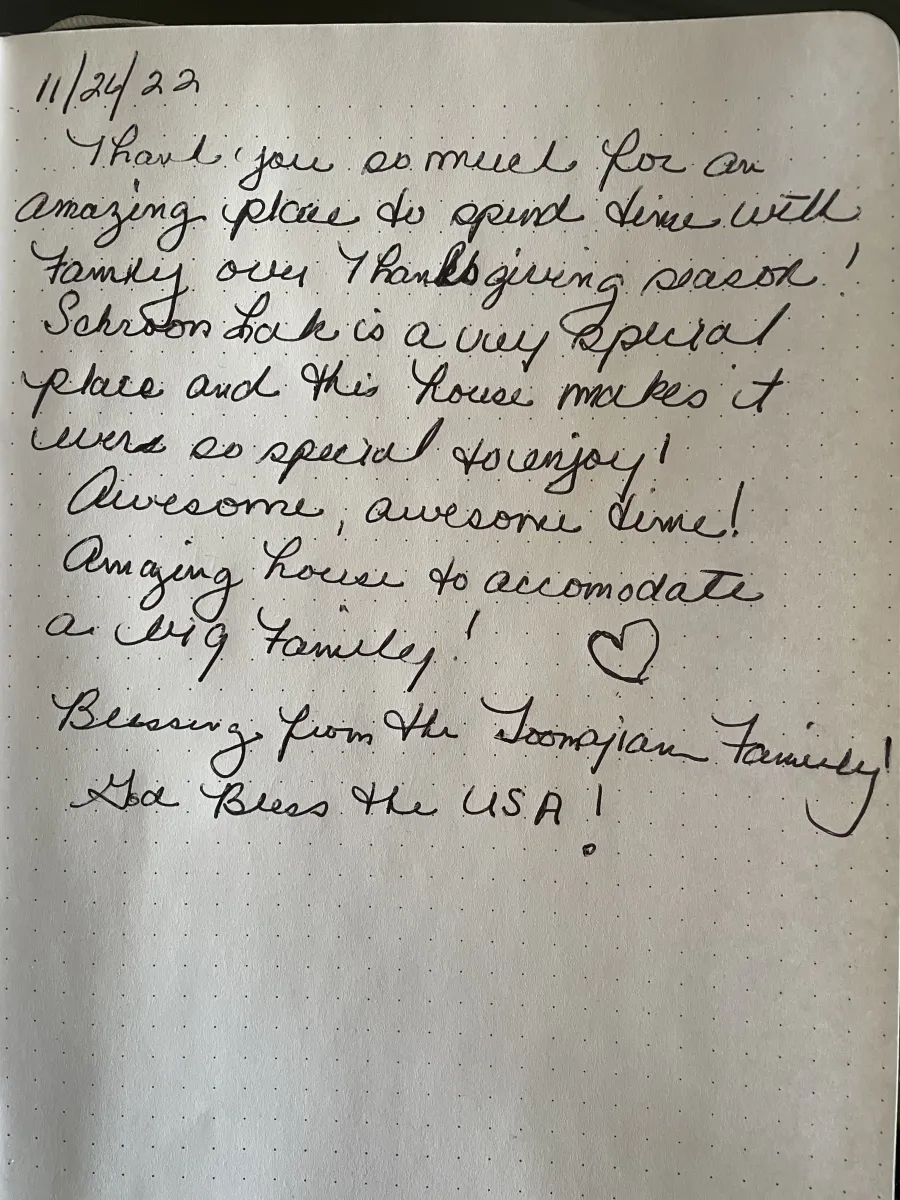 11/24/22
Thank you so much for an
amazing place to spend time with
Family over Thanksgiving season!
Schroon Lak is a very special
place and this house makes it
so special to enjoy!
Awesome, awesome time!
Amazing house to accomodate
a big Family!
Blessing from the Toomajian Family!
God Bless the USA!